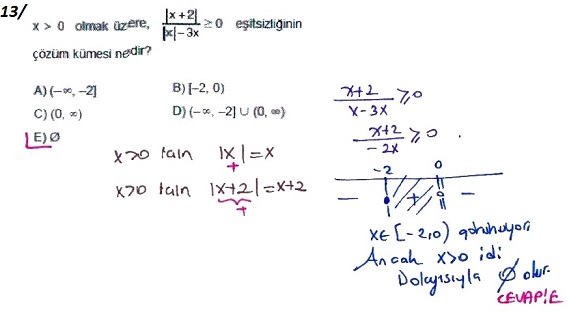 13/
x > 0 olmak üzere, |x+2| / |x|−3x ≥ 0 eşitsizliğinin
çözüm kümesi nedir?
A) (−∞, −2]
B) [−2, 0)
C) (0, ∞)
D) (−∞, −2] ∪ (0, ∞)
E) Ø
x>0 için |x| = x
+
x>0 için |x+2| = x+2
+
x+2 / x−3x ≥ 0
x+2 / −2x ≥ 0 .
−2 0
− + −
x∈[−2,0) görünüyor.
Ancak x>0 idi
Dolayısıyla Ø olur.
CEVAP:E